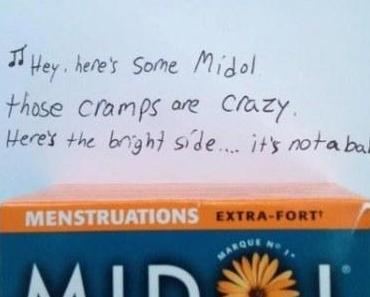 Hey, here's some Midol
those cramps are crazy.
Here's the bright side.... it's not a ba
MENSTRUATIONS EXTRA-FORT†
MARQUE Nº 1*
MIDOL®